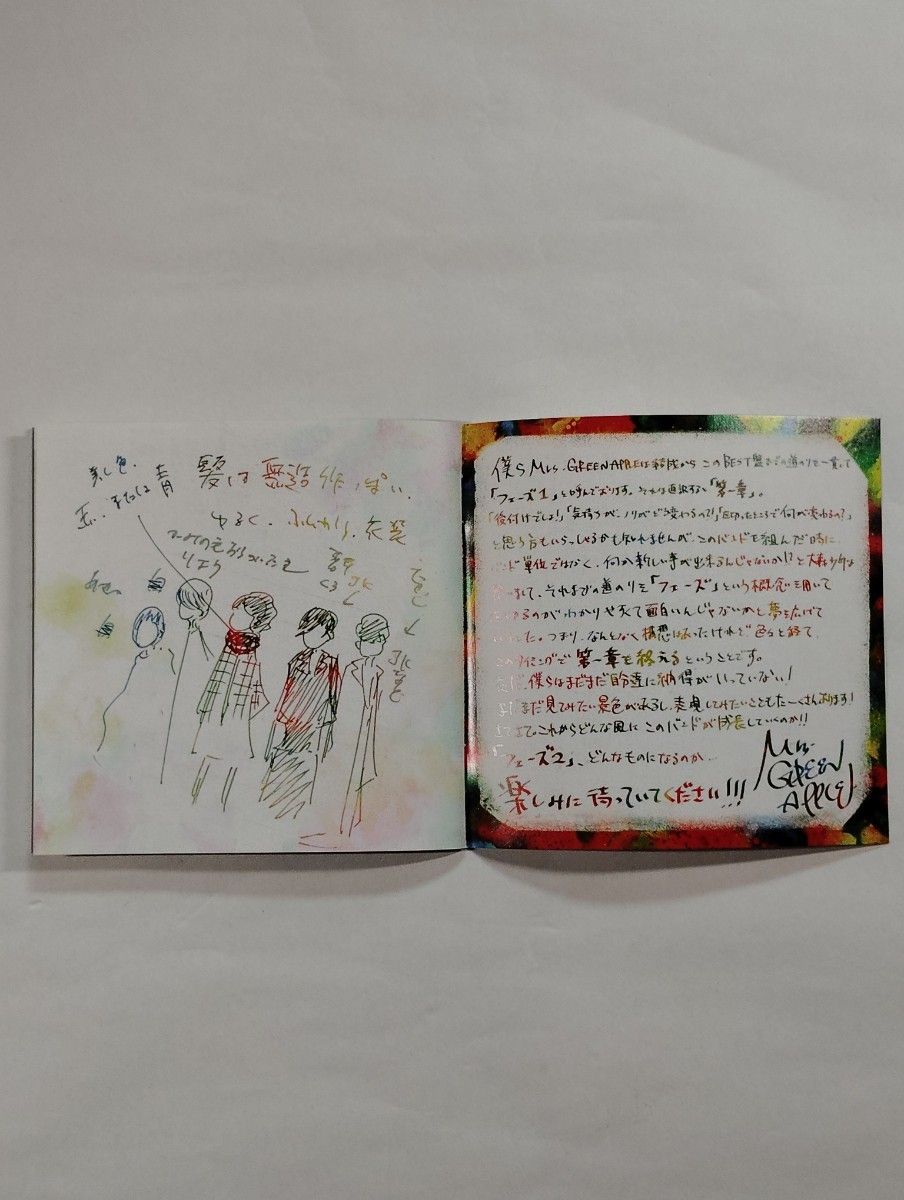 差し色。
赤、または青
髪は無造作っぽい。
ゆるく、ふんわり。
僕らMrs. GREEN APPLEは結成からこのBEST盤までの道のりを一貫して
「フェーズ1」と呼んでおります。それは直訳すると「第一章」。
「後付けでしょ!」「気持ちが、ノリがどう変わるの?!」「区切ったところで何が変わるの?」
と思う方もいらっしゃるかも知れませんが、このバンドを組んだ時に、
バンド単位ではなく、何か新しい事が出来るんじゃないか!?と大森少年は
それまでの道のりを「フェーズ」という概念を用いて
のがわかりやすくて面白いんじゃないかと夢を広げて
いました。つまり、なんとなく構想はあったけれど色々と経て、
このタイミングで第一章を終えるということです。
僕らはまだまだ自分達に納得がいっていない!
まだ見てみたい景色があるし、表現してみたいこともたーくさんあります!
これからどんな風にこのバンドが成長していくのか!!
「フェーズ2」、どんなものになるのか…
楽しみに待っていてください!!!
Mrs.
GREEN
APPLE